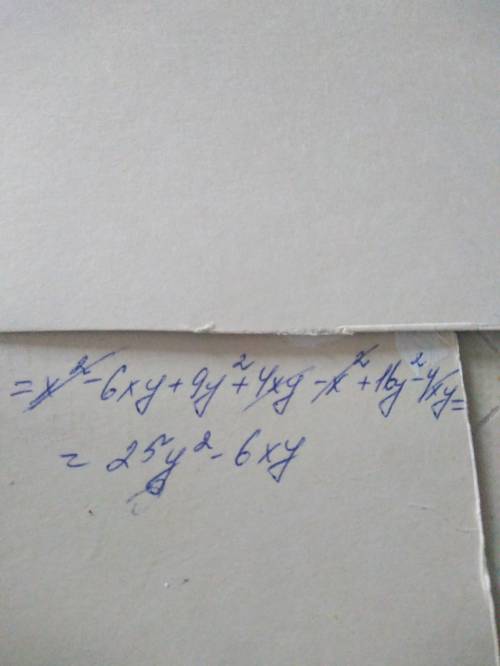 = x² - 6xy + 9y² + 4xy - x² + 16y² - 4xy =
= 25y² - 6xy